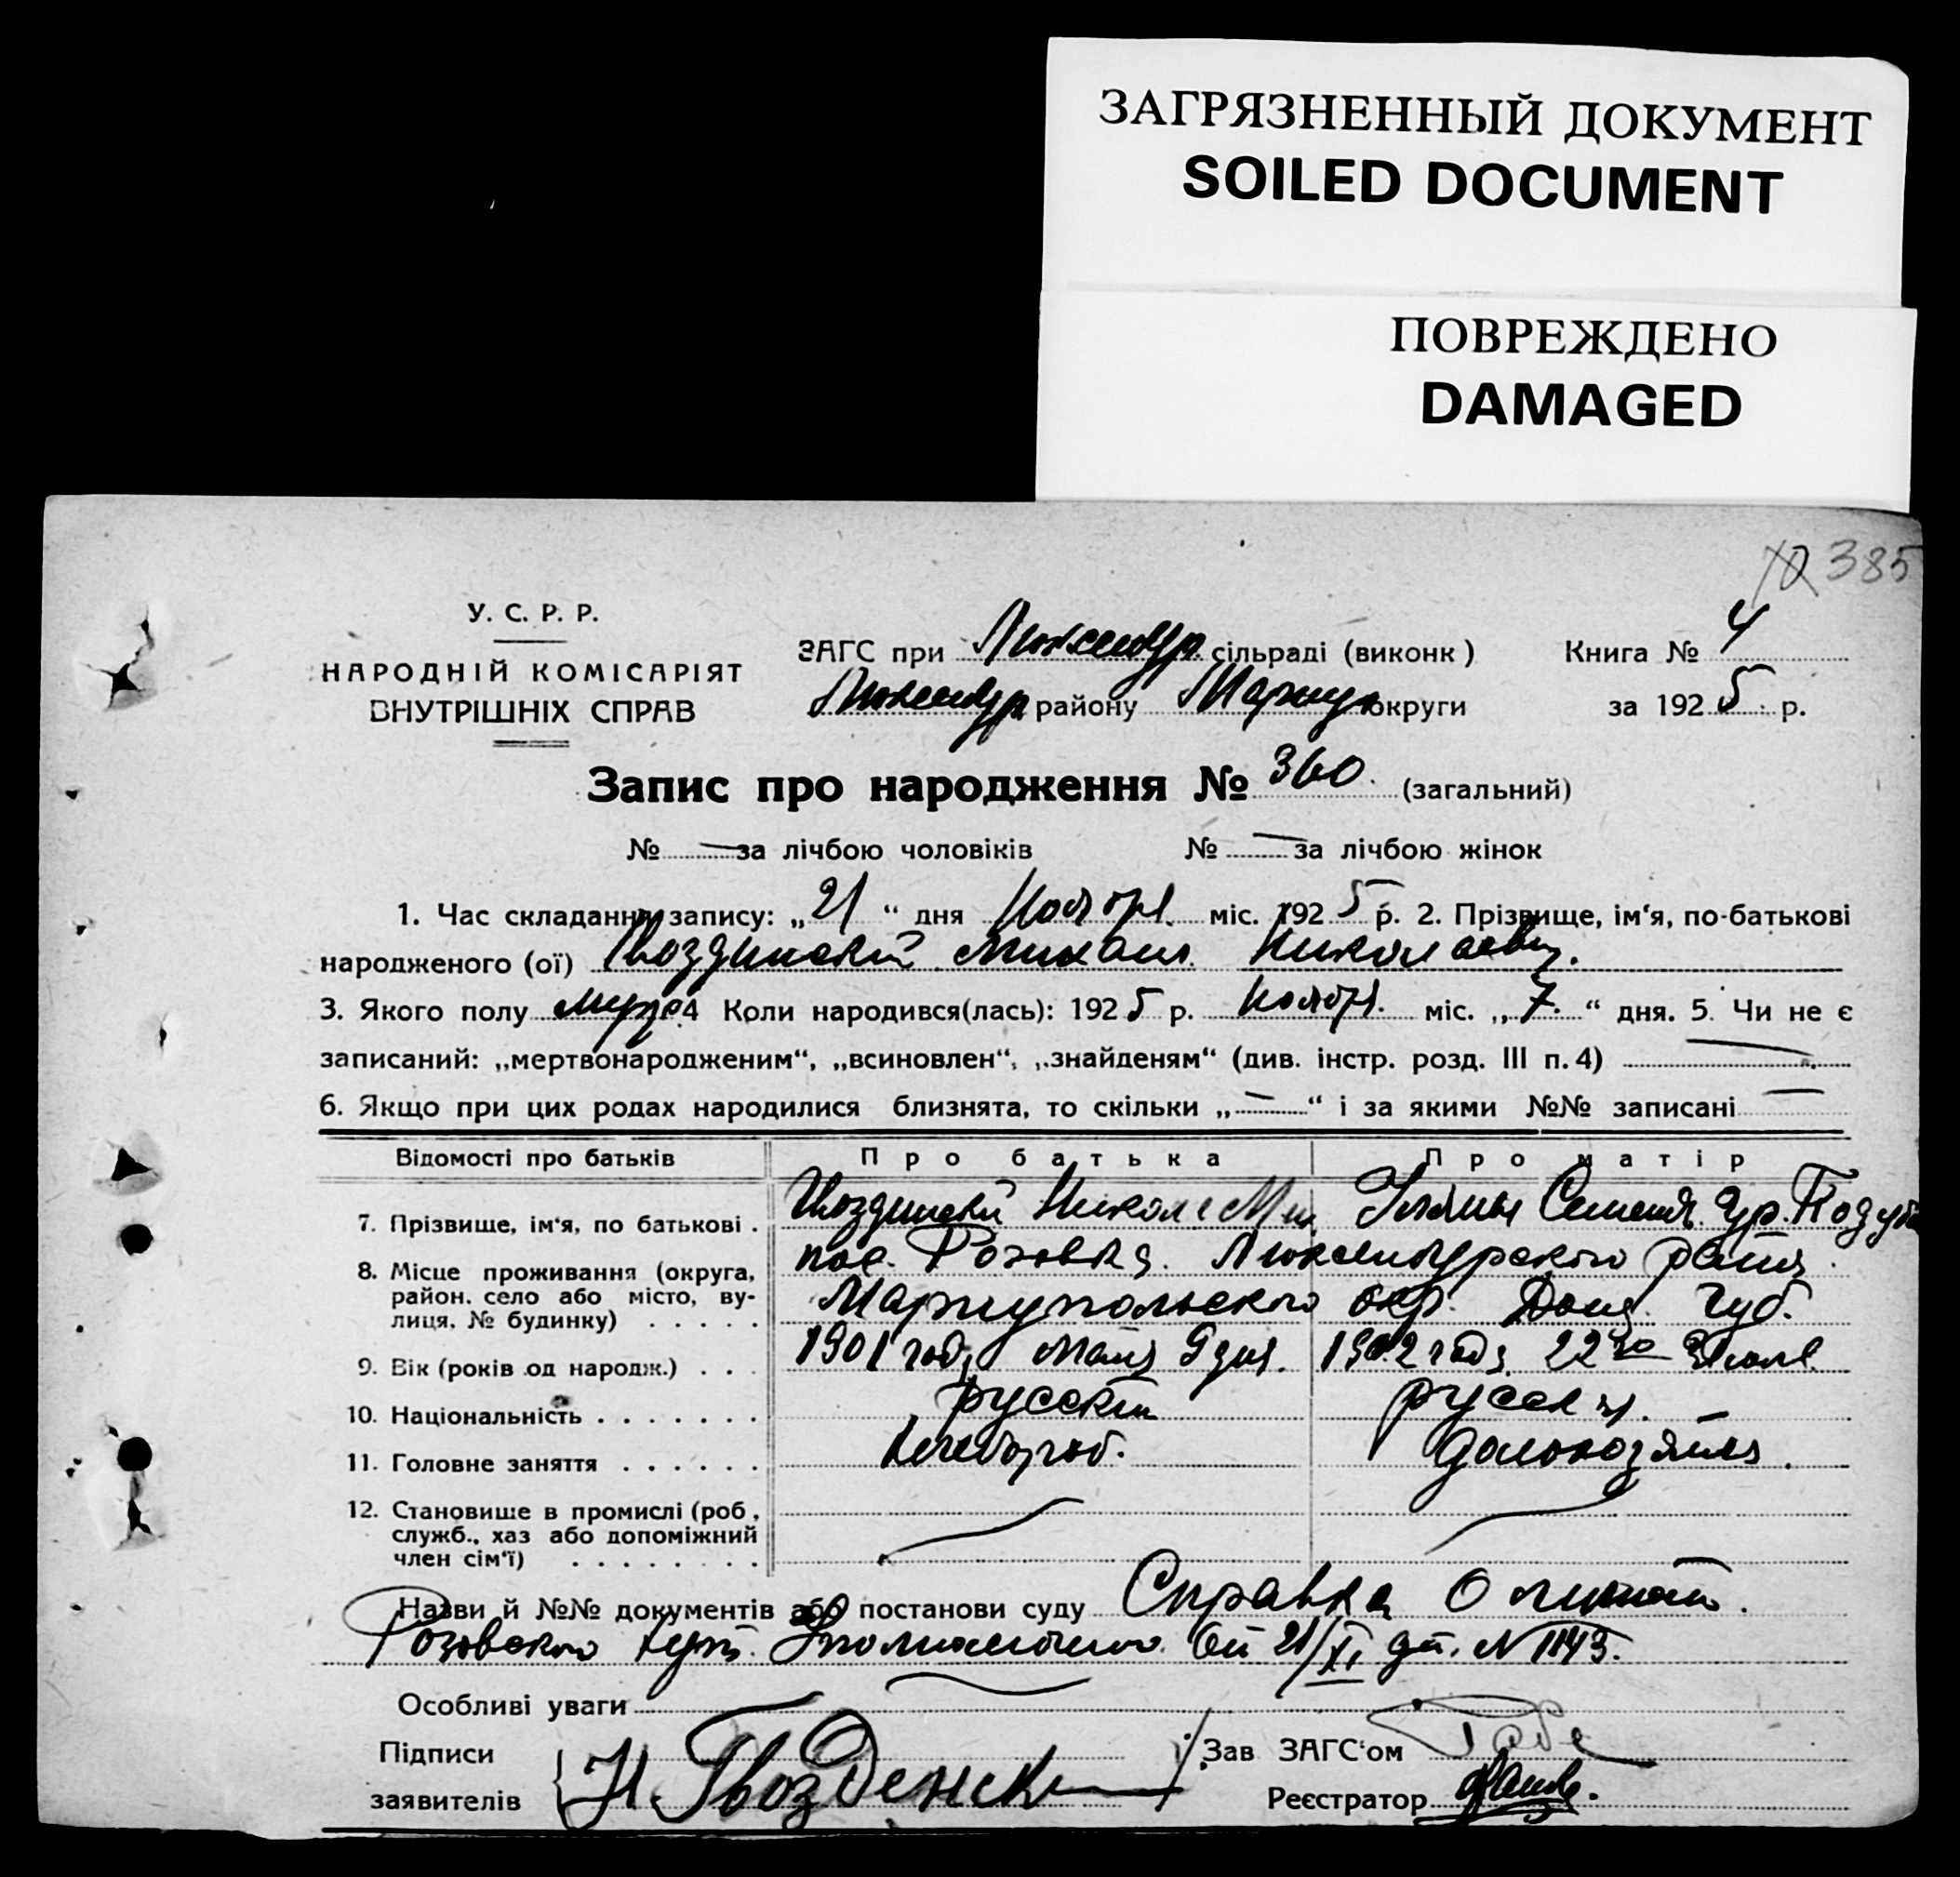 ЗАГРЯЗНЕННЫЙ ДОКУМЕНТ
SOILED DOCUMENT
ПОВРЕЖДЕНО
DAMAGED
385
У. С. Р. Р.
НАРОДНІЙ КОМІСАРІЯТ
ВНУТРІШНІХ СПРАВ
ЗАГС при Люксембур сільраді (виконк) Книга № 4
Люксембур району Мариуп округи за 1925 р.
Запис про народження № 360. (загальний)
№ — за лічбою чоловіків № — за лічбою жінок
1. Час складання запису: „21“ дня Ноября міс. 1925 р. 2. Прізвище, ім‘я, по-батькові
народженого (ої) Гвоздинский Михаил Николаевич.
3. Якого полу мужс. 4 Коли народився(лась): 1925 р. Ноября. міс. „7.“ дня. 5. Чи не є
записаний: „мертвонародженим“, „всиновлен“, „знайденям“ (див. інстр. розд. III п. 4) —
6. Якщо при цих родах народилися близнята, то скільки „—“ і за якими №№ записані —
Відомості про батьків Про батька Про матір
7. Прізвище, ім‘я, по батькові . Гвоздинский Никол Мих Ульяны Семеня. Ур.
8. Місце проживання (округа, район, село або місто, вулиця, № будинку) . . . . .
пос. Розовка. Люксембургского района.
Мариупольского окр. Дон. Губ.
9. Вік (років од народж.) . . . 1901 года Мая 9 дня. 1902 года 22го Июля
10. Національність . . . . . . . русский русская.
11. Головне заняття . . . . . . домохозяйка.
12. Становище в промислі (роб,
служб., хаз або допоміжний
член сім‘ї) . . . . . . . .
Назви й №№ документів або постанови суду Справка О
Розовского От 21/XI № 1143.
Особливі уваги
Підписи
заявителів Н. Гвозденск
Зав ЗАГС‘ом
Реєстратор